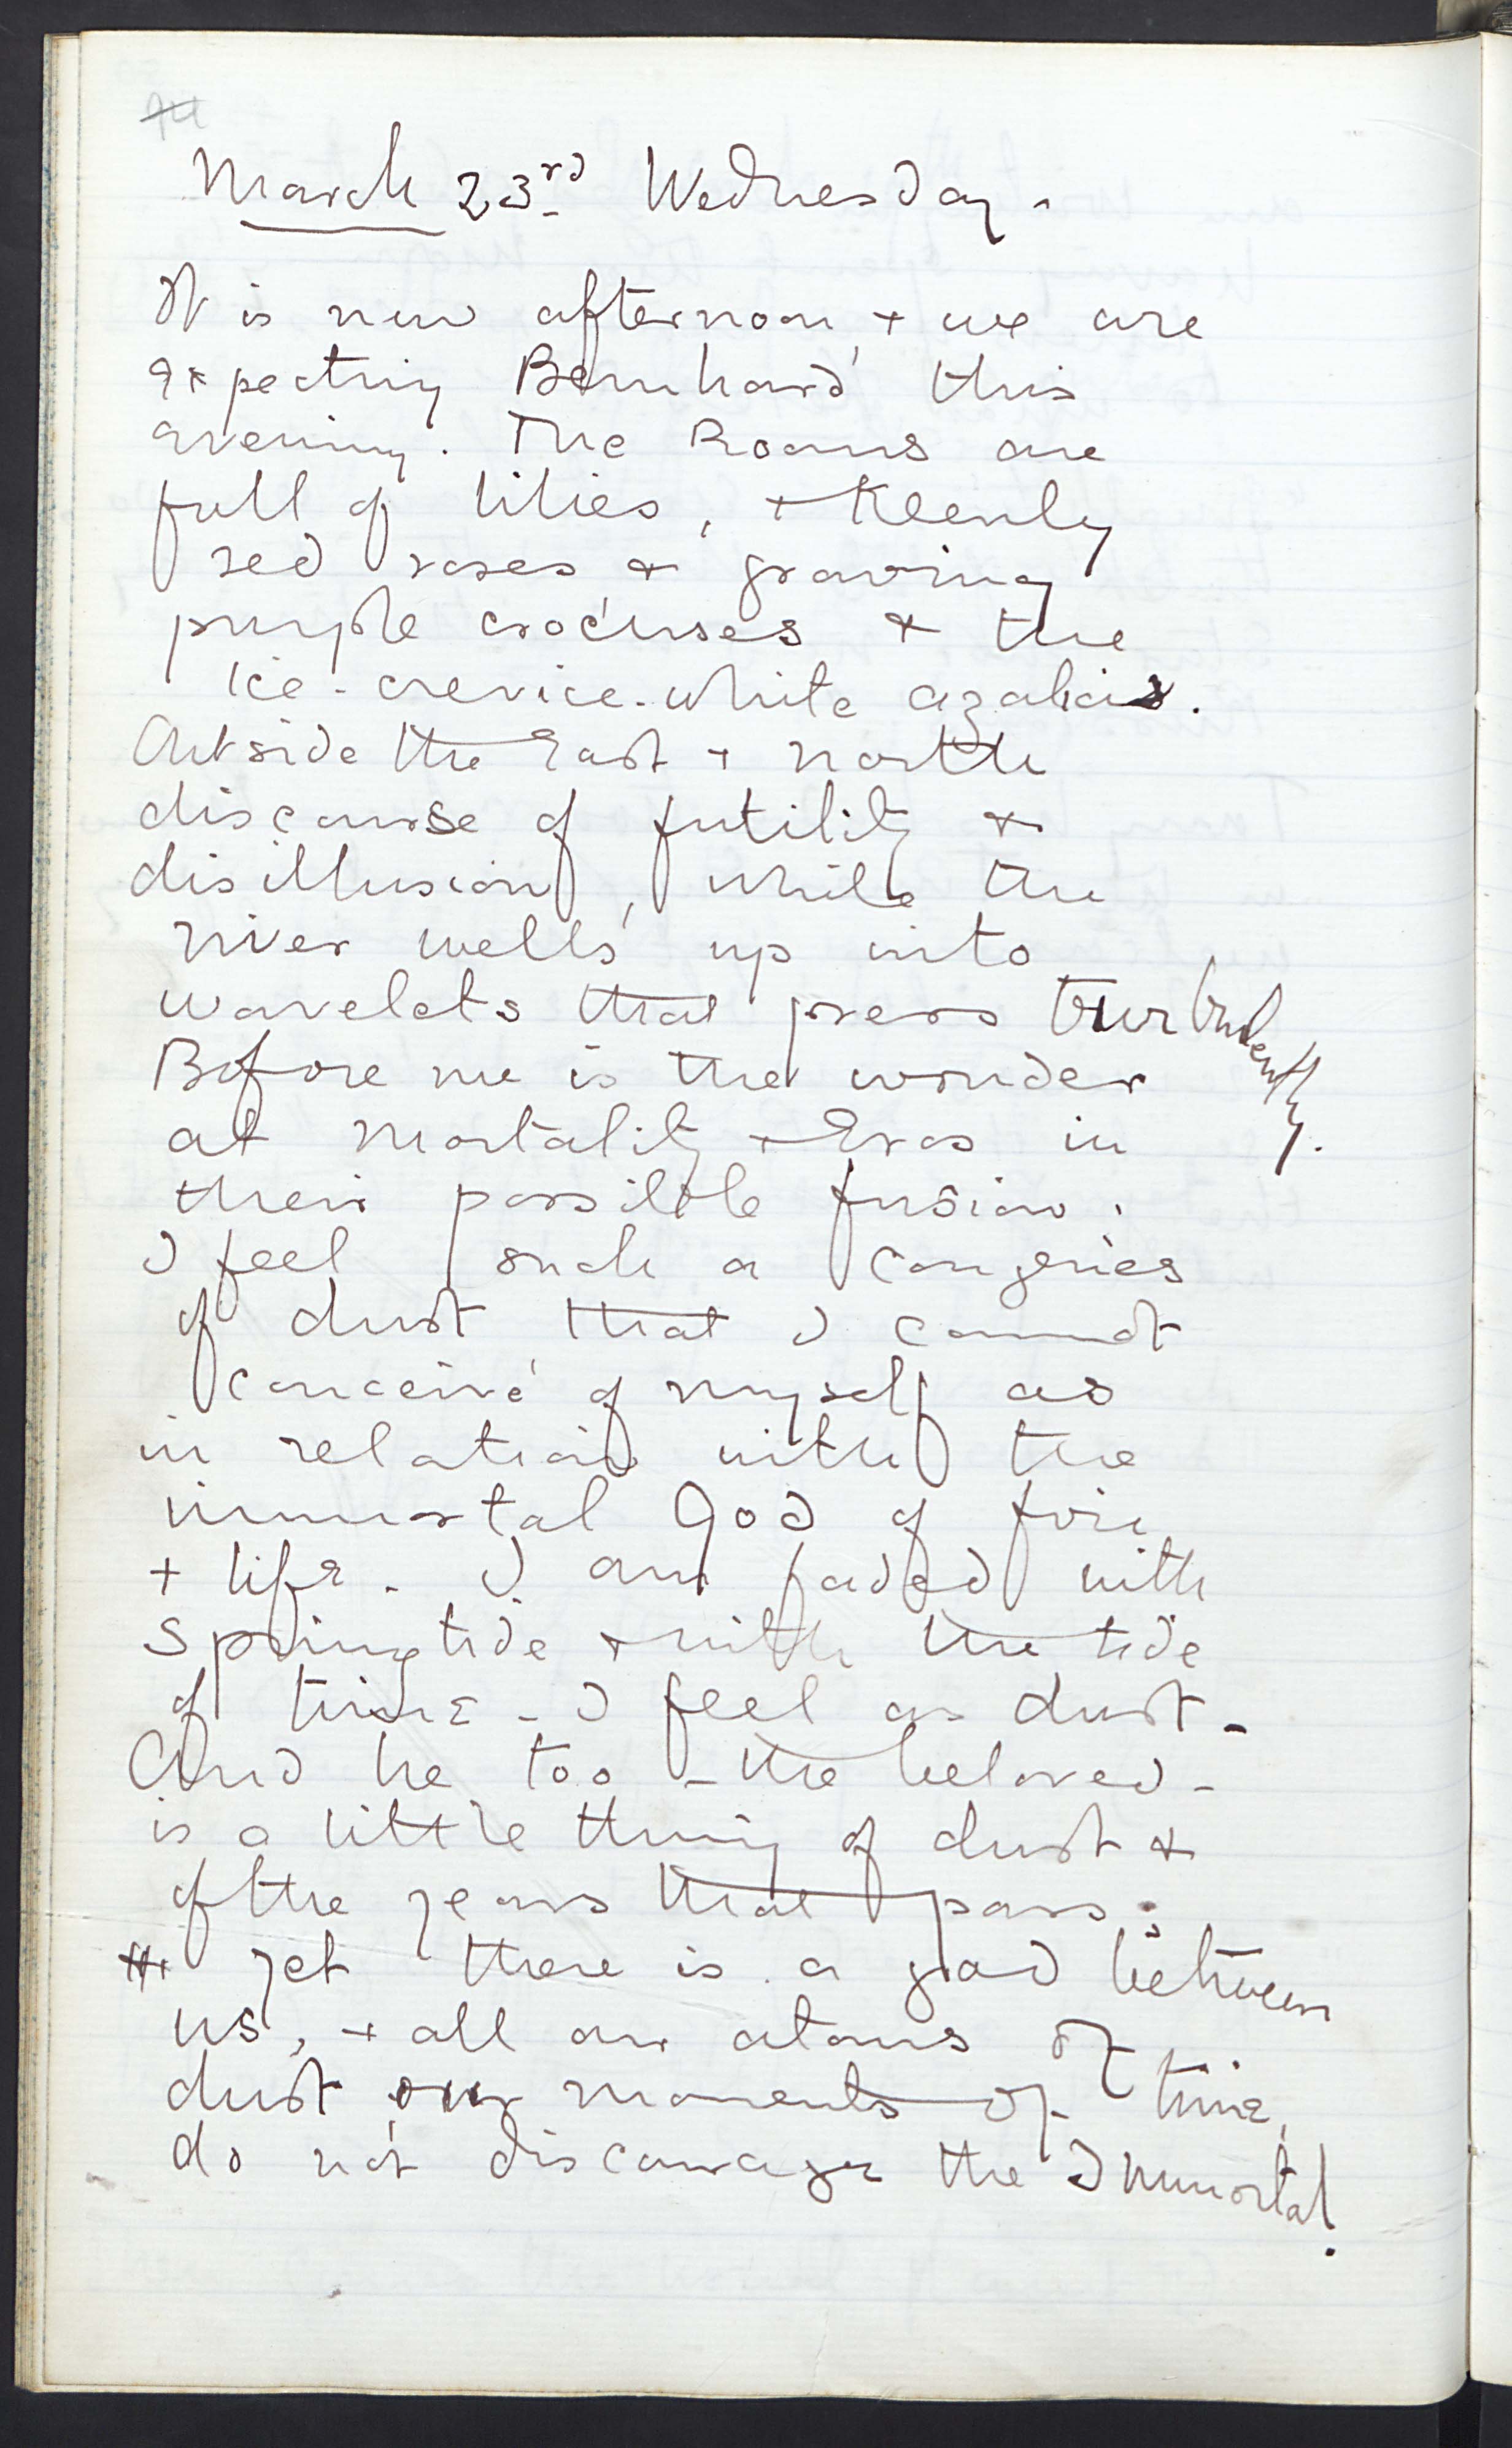 March 23rd Wednesday.
It is now afternoon, & we are
expecting Bernhard this
evening. The Rooms are
full of lilies, & Keenly
red roses & growing
purple crocuses & the
ice-crevice-white azaleas.
Outside the East & north
discourse of futility &
disillusion, while the
river wells up into
wavelets that press turbulently.
Before me is the wonder
at mortality & Eros in
their possible fusion.
I feel such a congeries
of dust that I cannot
conceive of myself as
in relation with the
immortal God of fire
& life. I am faded with
Springtide & with the tide
of time - I feel as dust -
And he too - the beloved -
is a little thing of dust &
of the years that pass.
yet there is a god between
us, & all our atoms of
dust our moments of time,
do not discourage the Immortal!